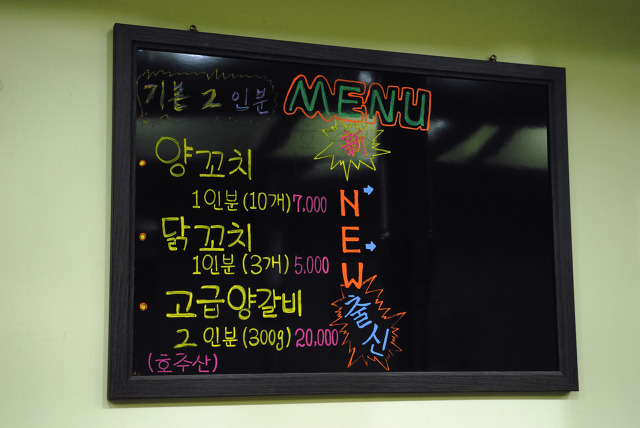 기본 2 인분
MENU
新
양꼬치
1인분(10개) 7,000
닭꼬치
1인분(3개) 5,000
고급양갈비
2인분(300g) 20,000
(호주산)
NEW
출신